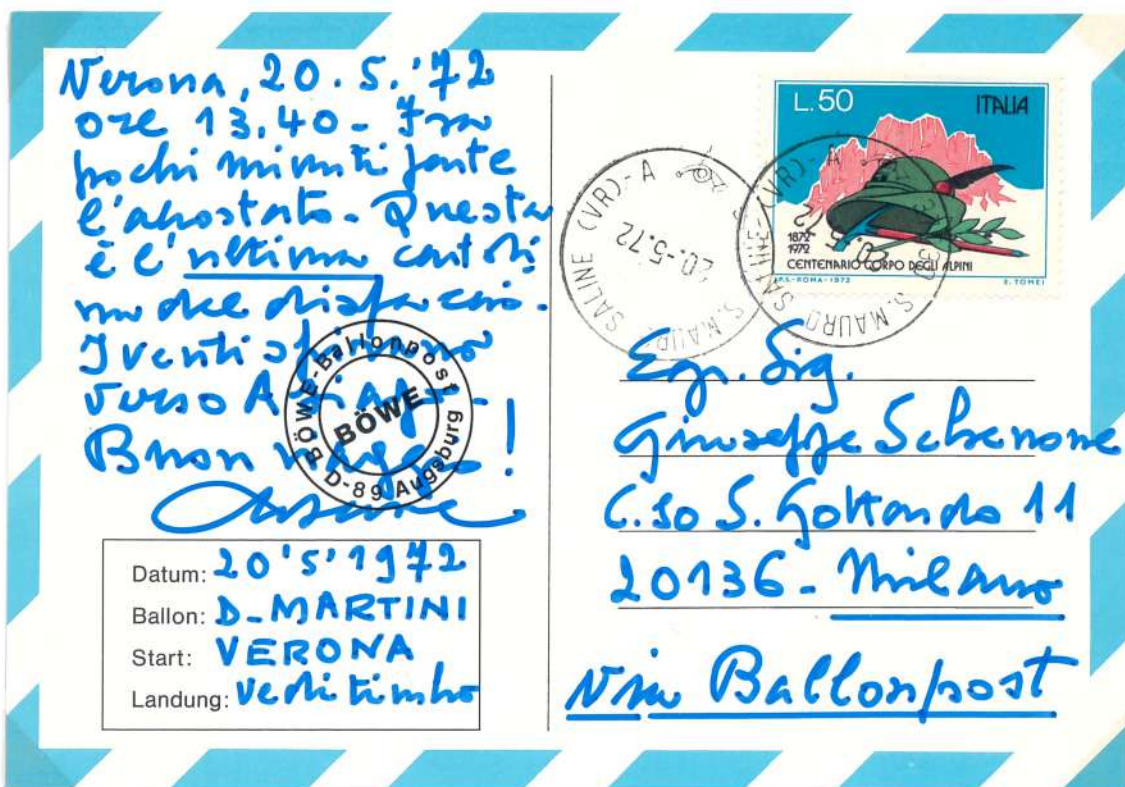 Verona, 20.5.'72
ore 13.40 - Fra
pochi minuti parte
l'aerostato. Questa
è l'ultima cartoli
na che
I venti spirano
verso Asiago.
Buon viaggio!
Datum: 20'5'1972
Ballon: D-MARTINI
Start: VERONA
Landung: vedi timbro
BÖWE-Ballonpost
BÖWE
D-89 Augsburg
L.50 ITALIA
1872
1972
CENTENARIO CORPO DEGLI ALPINI
I.P.S.-ROMA-1972 E. TOMEI
S. MAURO SALINE (VR)-A
20.-5.72
S. MAURO SALINE (VR)-A
Egr. Sig.
Giuseppe Schenone
C.so S. Gottardo 11
20136 - Milano
Via Ballonpost